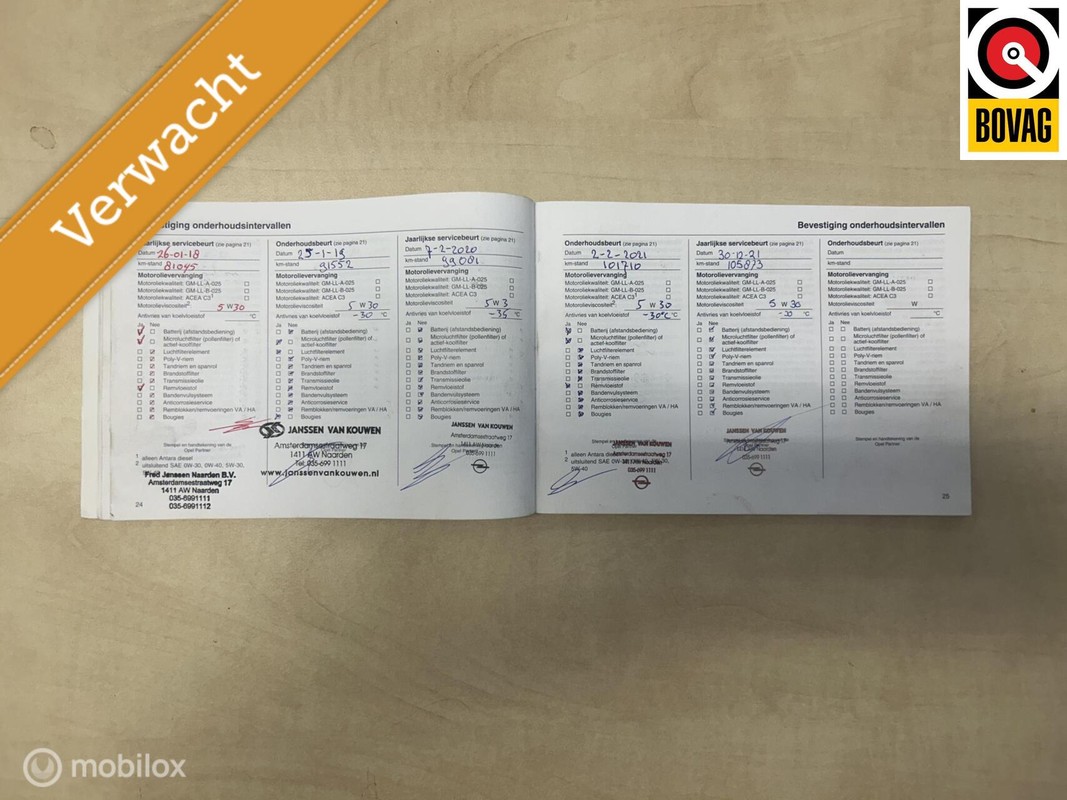 Verwacht
BOVAG
Bevestiging onderhoudsintervallen
Jaarlijkse servicebeurt (zie pagina 21)
Datum 26-01-18
km-stand 81045
Motorolievervanging
Motoroliekwaliteit: GM-LL-A-025
Motoroliekwaliteit: GM-LL-B-025
Motoroliekwaliteit: ACEA C3¹
Motorolieviscositeit²: 5 W 30
Antivries van koelvloeistof °C
Ja Nee
Batterij (afstandsbediening)
Microluchtfilter (pollenfilter) of
actief-koolfilter
Luchtfilterelement
Poly-V-riem
Tandriem en spanrol
Brandstoffilter
Transmissieolie
Remvloeistof
Bandenvulsysteem
Anticorrosieservice
Remblokken/remvoeringen VA / HA
Bougies
Stempel en handtekening van de
Opel Partner
¹ alleen Antara diesel
² uitsluitend SAE 0W-30, 0W-40, 5W-30,
Fred Janssen Naarden B.V.
Amsterdamsestraatweg 17
1411 AW Naarden
035-6991111
035-6991112
24
Onderhoudsbeurt (zie pagina 21)
Datum
km-stand 91552
Motorolievervanging
Motoroliekwaliteit: GM-LL-A-025
Motoroliekwaliteit: GM-LL-B-025
Motoroliekwaliteit: ACEA C3
Motorolieviscositeit 5 W 30
Antivries van koelvloeistof -30 °C
Ja Nee
Batterij (afstandsbediening)
Microluchtfilter (pollenfilter) of
actief-koolfilter
Luchtfilterelement
Poly-V-riem
Tandriem en spanrol
Brandstoffilter
Transmissieolie
Remvloeistof
Bandenvulsysteem
Anticorrosieservice
Remblokken/remvoeringen VA / HA
Bougies
JANSSEN VAN KOUWEN
Amsterdamsestraatweg 17
1411 AW Naarden
Tel. 035-699 1111
www.janssenvankouwen.nl
Jaarlijkse servicebeurt (zie pagina 21)
Datum 7-2-2020
km-stand 99081
Motorolievervanging
Motoroliekwaliteit: GM-LL-A-025
Motoroliekwaliteit: GM-LL-B-025
Motoroliekwaliteit: ACEA C3
Motorolieviscositeit 5 W 3
Antivries van koelvloeistof -35 °C
Ja Nee
Batterij (afstandsbediening)
Microluchtfilter (pollenfilter) of
actief-koolfilter
Luchtfilterelement
Poly-V-riem
Tandriem en spanrol
Brandstoffilter
Transmissieolie
Remvloeistof
Bandenvulsysteem
Anticorrosieservice
Remblokken/remvoeringen VA / HA
Bougies
JANSSEN VAN KOUWEN
Amsterdamsestraatweg 17
1411 AW Naarden
035-699 1111
Bevestiging onderhoudsintervallen
Onderhoudsbeurt (zie pagina 21)
Datum 2-2-2021
km-stand 101710
Motorolievervanging
Motoroliekwaliteit: GM-LL-A-025
Motoroliekwaliteit: GM-LL-B-025
Motoroliekwaliteit: ACEA C3¹
Motorolieviscositeit²: 5 W 30
Antivries van koelvloeistof -30°C °C
Ja Nee
Batterij (afstandsbediening)
Microluchtfilter (pollenfilter) of
actief-koolfilter
Luchtfilterelement
Poly-V-riem
Tandriem en spanrol
Brandstoffilter
Transmissieolie
Remvloeistof
Bandenvulsysteem
Anticorrosieservice
Remblokken/remvoeringen VA / HA
Bougies
Stempel en handtekening van de
Opel Partner
¹ alleen Antara diesel
² uitsluitend SAE 0W-30, 0W-40, 5W-30,
5W-40
JANSSEN VAN KOUWEN
Amsterdamsestraatweg 17
Jaarlijkse servicebeurt (zie pagina 21)
Datum 30-12-21
km-stand 105873
Motorolievervanging
Motoroliekwaliteit: GM-LL-A-025
Motoroliekwaliteit: GM-LL-B-025
Motoroliekwaliteit: ACEA C3
Motorolieviscositeit 5 W 30
Antivries van koelvloeistof -30 °C
Ja Nee
Batterij (afstandsbediening)
Microluchtfilter (pollenfilter) of
actief-koolfilter
Luchtfilterelement
Poly-V-riem
Tandriem en spanrol
Brandstoffilter
Transmissieolie
Remvloeistof
Bandenvulsysteem
Anticorrosieservice
Remblokken/remvoeringen VA / HA
Bougies
JANSSEN VAN KOUWEN
Onderhoudsbeurt (zie pagina 21)
Datum
km-stand
Motorolievervanging
Motoroliekwaliteit: GM-LL-A-025
Motoroliekwaliteit: GM-LL-B-025
Motoroliekwaliteit: ACEA C3
Motorolieviscositeit W
Antivries van koelvloeistof °C
Ja Nee
Batterij (afstandsbediening)
Microluchtfilter (pollenfilter) of
actief-koolfilter
Luchtfilterelement
Poly-V-riem
Tandriem en spanrol
Brandstoffilter
Transmissieolie
Remvloeistof
Bandenvulsysteem
Anticorrosieservice
Remblokken/remvoeringen VA / HA
Bougies
Stempel en handtekening van de
Opel Partner
25
mobilox